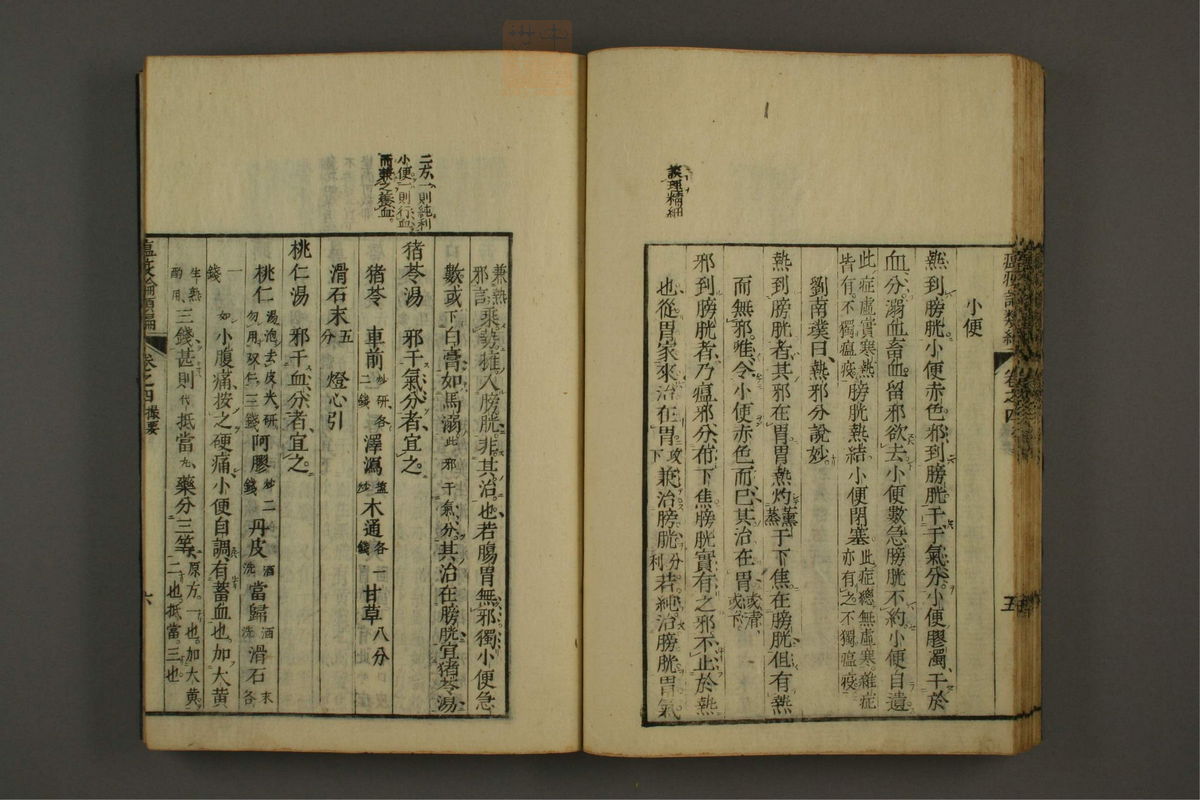 小便
熱到膀胱小便赤色邪到膀胱干于氣分小便膠濁干於
血分溺血畜血留邪欲去小便數急膀胱不約小便自遺
此症虛實寒熱皆有不獨瘟疫膀胱熱結小便閉塞此症總無虛寒雜症亦有之不獨瘟疫
劉南瓊曰熱邪分說妙
熱到膀胱者其邪在胃胃熱灼薰蒸于下焦在膀胱但有熱
而無邪唯令小便赤色而已其治在胃或清或下
邪到膀胱者乃瘟邪分布下焦膀胱實有之邪不止於熱
也從胃家來治在胃攻下兼治膀胱分利若純治膀胱胃氣
議理精細
卷之四
五
兼熱邪言乘勢擁入膀胱非其治也若腸胃無邪獨小便急
數或下白膏如馬溺此邪干氣分其治在膀胱宜猪苓湯
猪苓湯 邪干氣分者宜之
猪苓 車前炒研各二錢 澤瀉鹽炒 木通各一錢 甘草八分
滑石末五分 燈心引
桃仁湯 邪干血分者宜之
桃仁湯泡去皮尖研勿用双仁三錢 阿膠炒二錢 丹皮酒洗 當歸酒洗 滑石末各
一錢 如小腹痛按之硬痛小便自調有蓄血也加大黄
生熟酌用三錢甚則代抵當丸藥分三等原方一也加大黄二也抵當三也
二方一則純利
小便一則行血
而兼之養血
卷之四 撮要
六